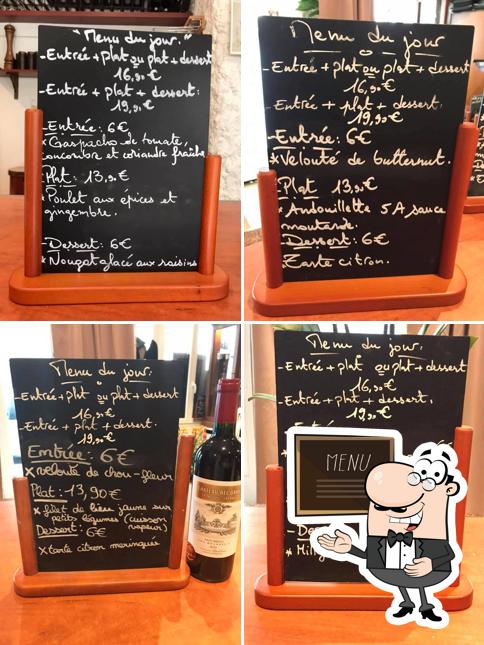 "Menu du jour."
-Entrée + plat ou plat + dessert
16,90€
-Entrée + plat + dessert:
19,90€
-Entrée: 6€
*Gaspacho de tomate,
concombre et coriandre fraîche
-Plat: 13,90€
*Poulet aux épices et
gingembre.
-Dessert: 6€
*Nougat glacé aux raisins
Menu du jour
-Entrée + plat ou plat + dessert
16,90€
-Entrée + plat + dessert.
19,90€
-Entrée: 6€
*Velouté de butternut.
-Plat 13,90€
*Andouillette 5A sauce
moutarde.
-Dessert: 6€
Tarte citron.
Menu du jour.
-Entrée + plat ou plat + dessert
16,90€
-Entrée + plat + dessert.
19,90€
Entrée: 6€
x velouté de chou-fleur
Plat: 13,90€
x filet de lieu jaune sur
petits légumes (cuisson
vapeur)
Dessert: 6€
x tarte citron meringuée
Menu du jour.
-Entrée + plat ou plat + dessert
16,90€
-Entrée + plat + dessert.
19,90€
MENU